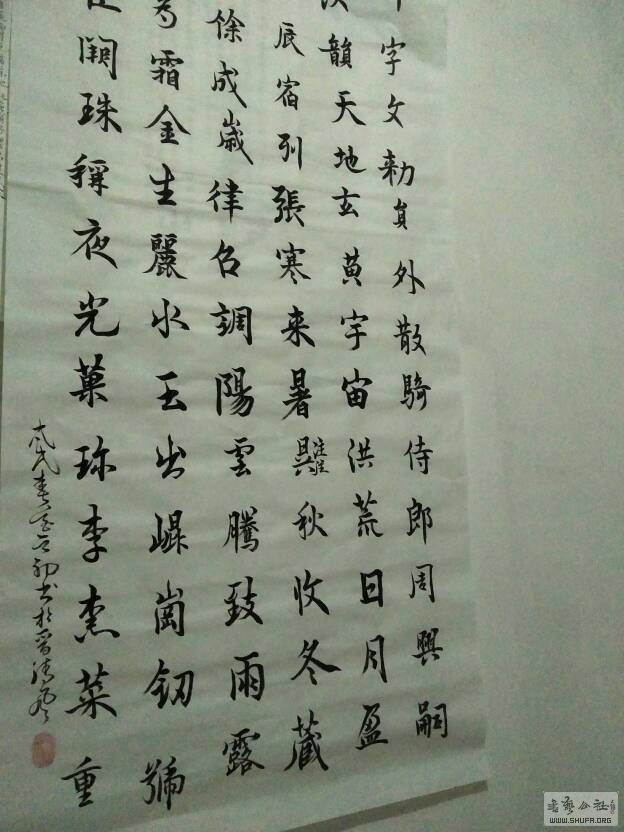 字文勑貟外散騎侍郎周興嗣
韻天地玄黄宇宙洪荒日月盈
辰宿列張寒来暑秋收冬藏
餘成嵗律吕調陽雲騰致雨露
為霜金生麗水玉出崐崗釼號
巨闕珠稱夜光菓珎李柰菜重
WWW.SHUFA.ORG